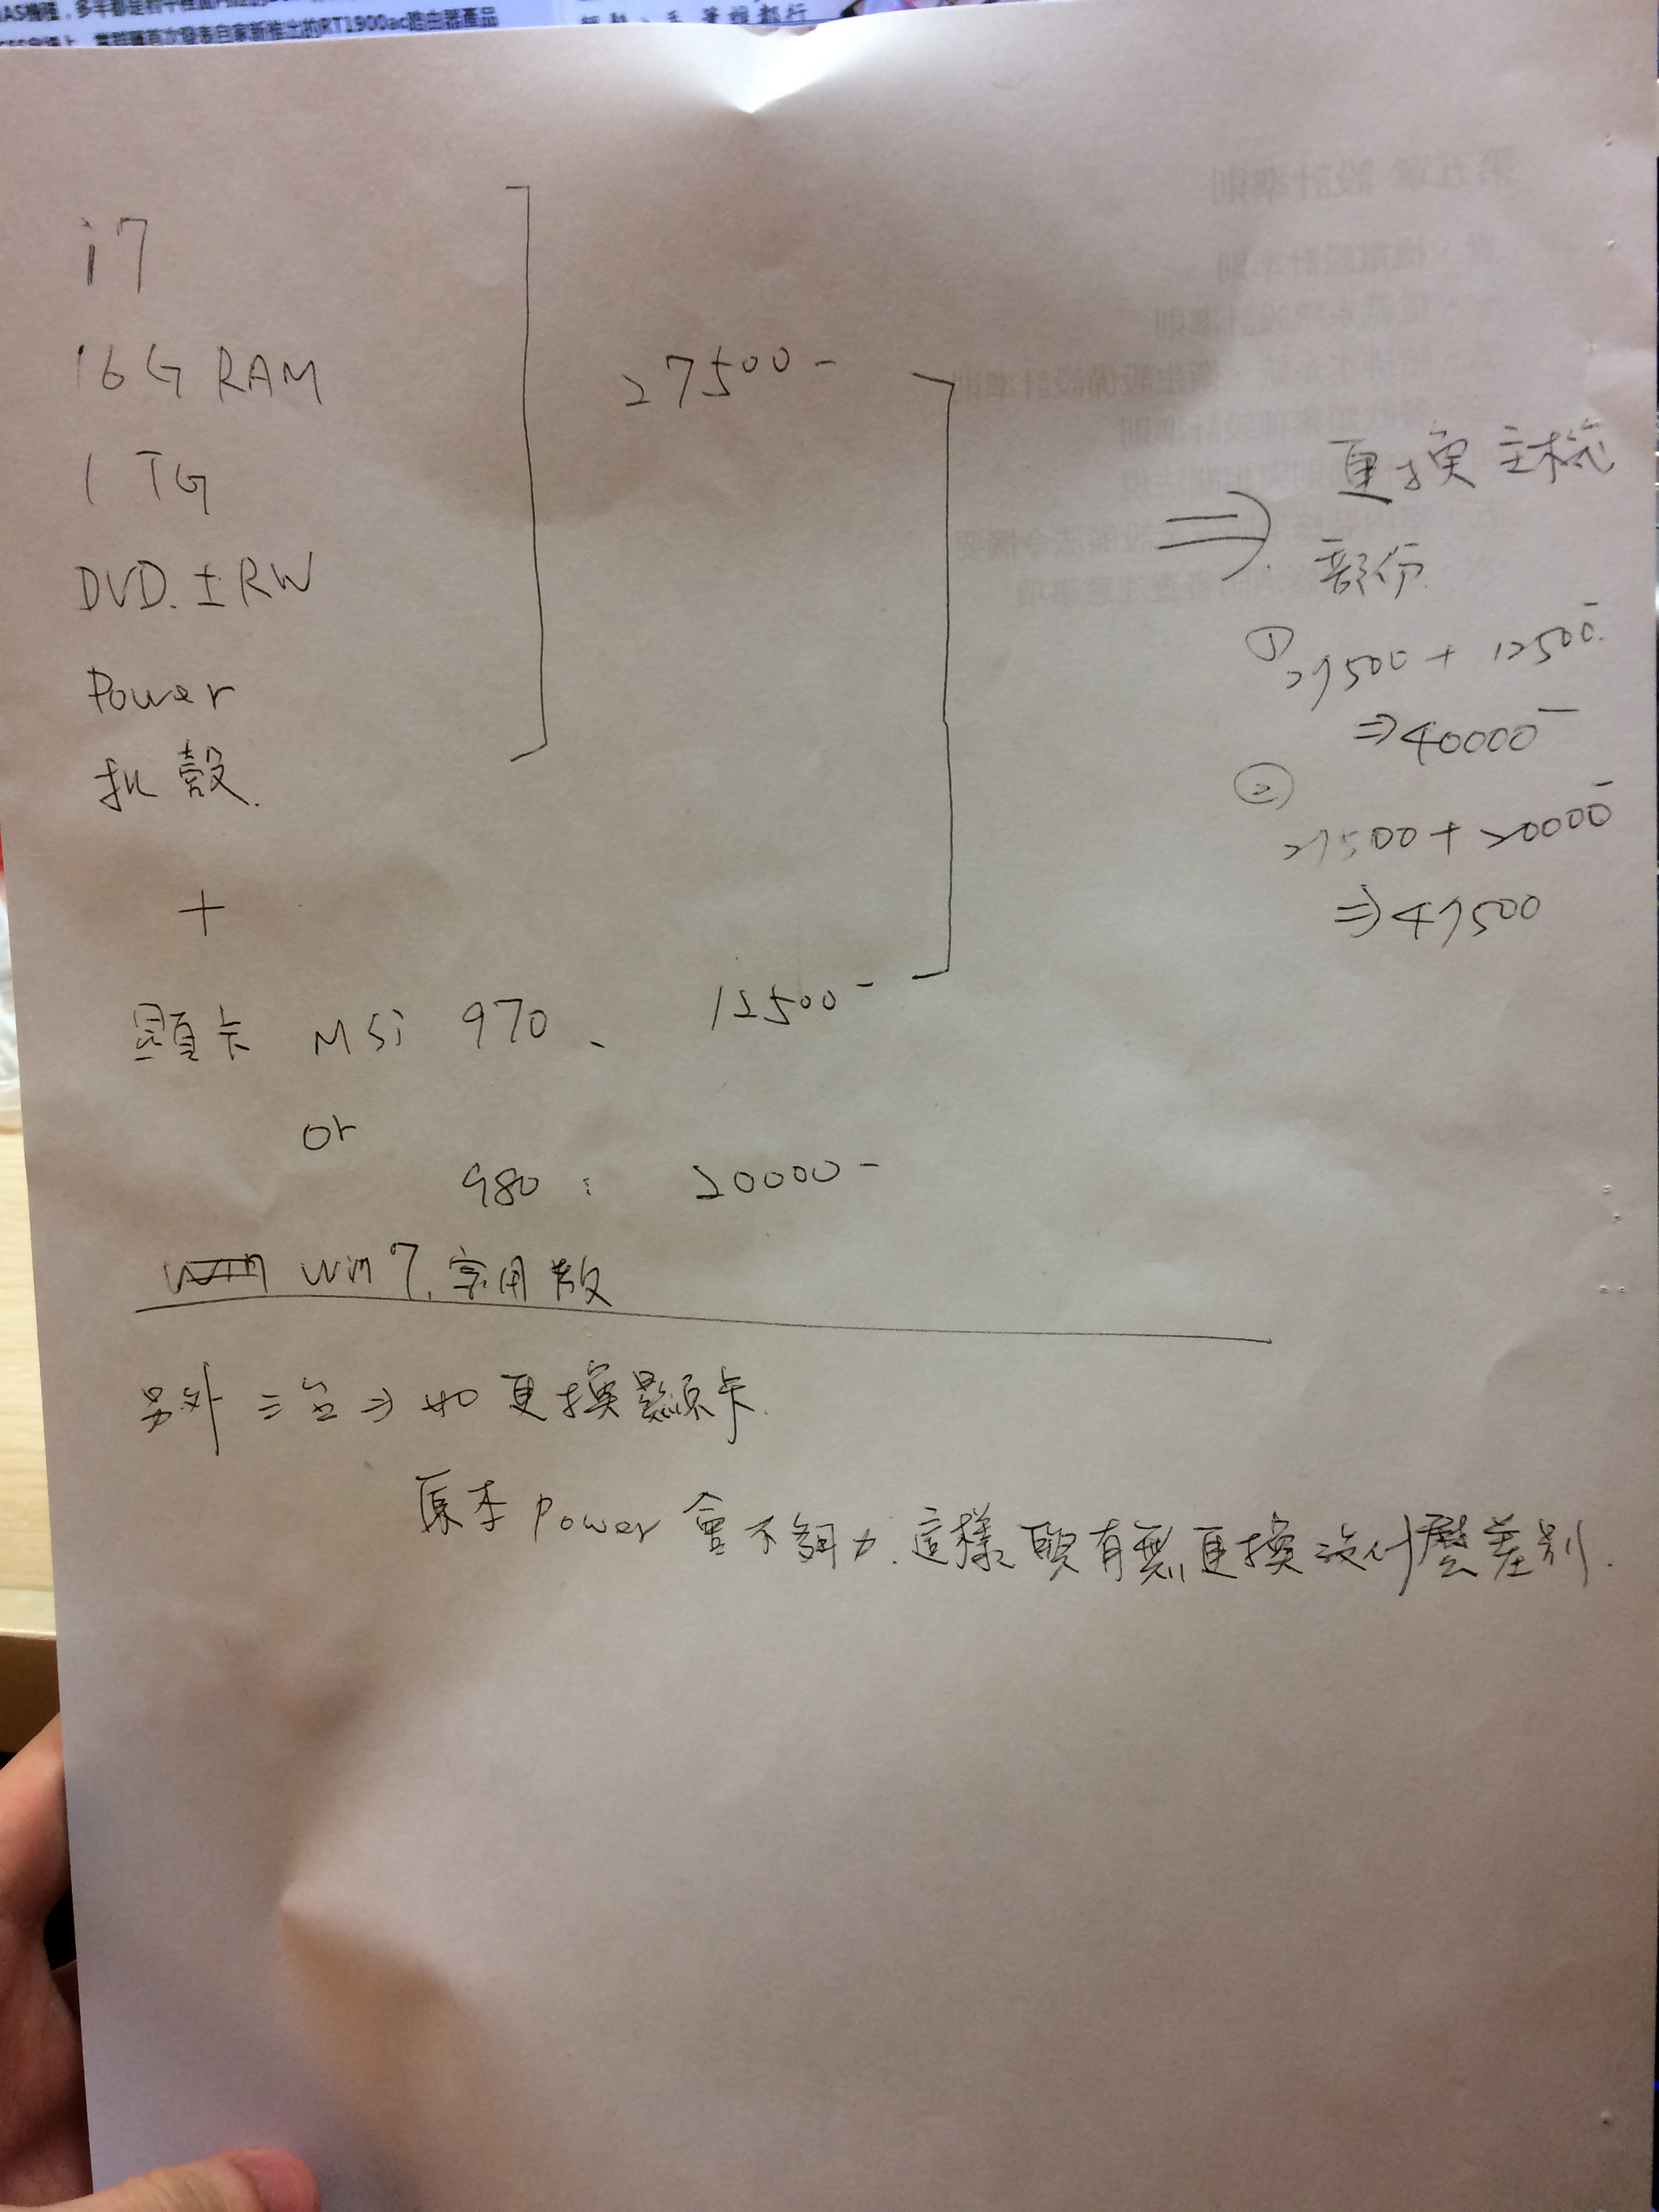 RT1900ac路由器產品
i7
16G RAM
1 TG
DVD.±RW
Power
机殼.
27500-
+
顯卡 MSi 970、 12500-
or
980: 20000-
Win7.家用版
⇒ 更換主機
部份
① 27500 + 12500-
⇒ 40000-
② 27500 + 20000-
⇒ 47500
另外三台⇒如更換顯卡.
原本 Power 會不夠力.這樣跟有無更換沒什麼差別.
第五章 設計準則